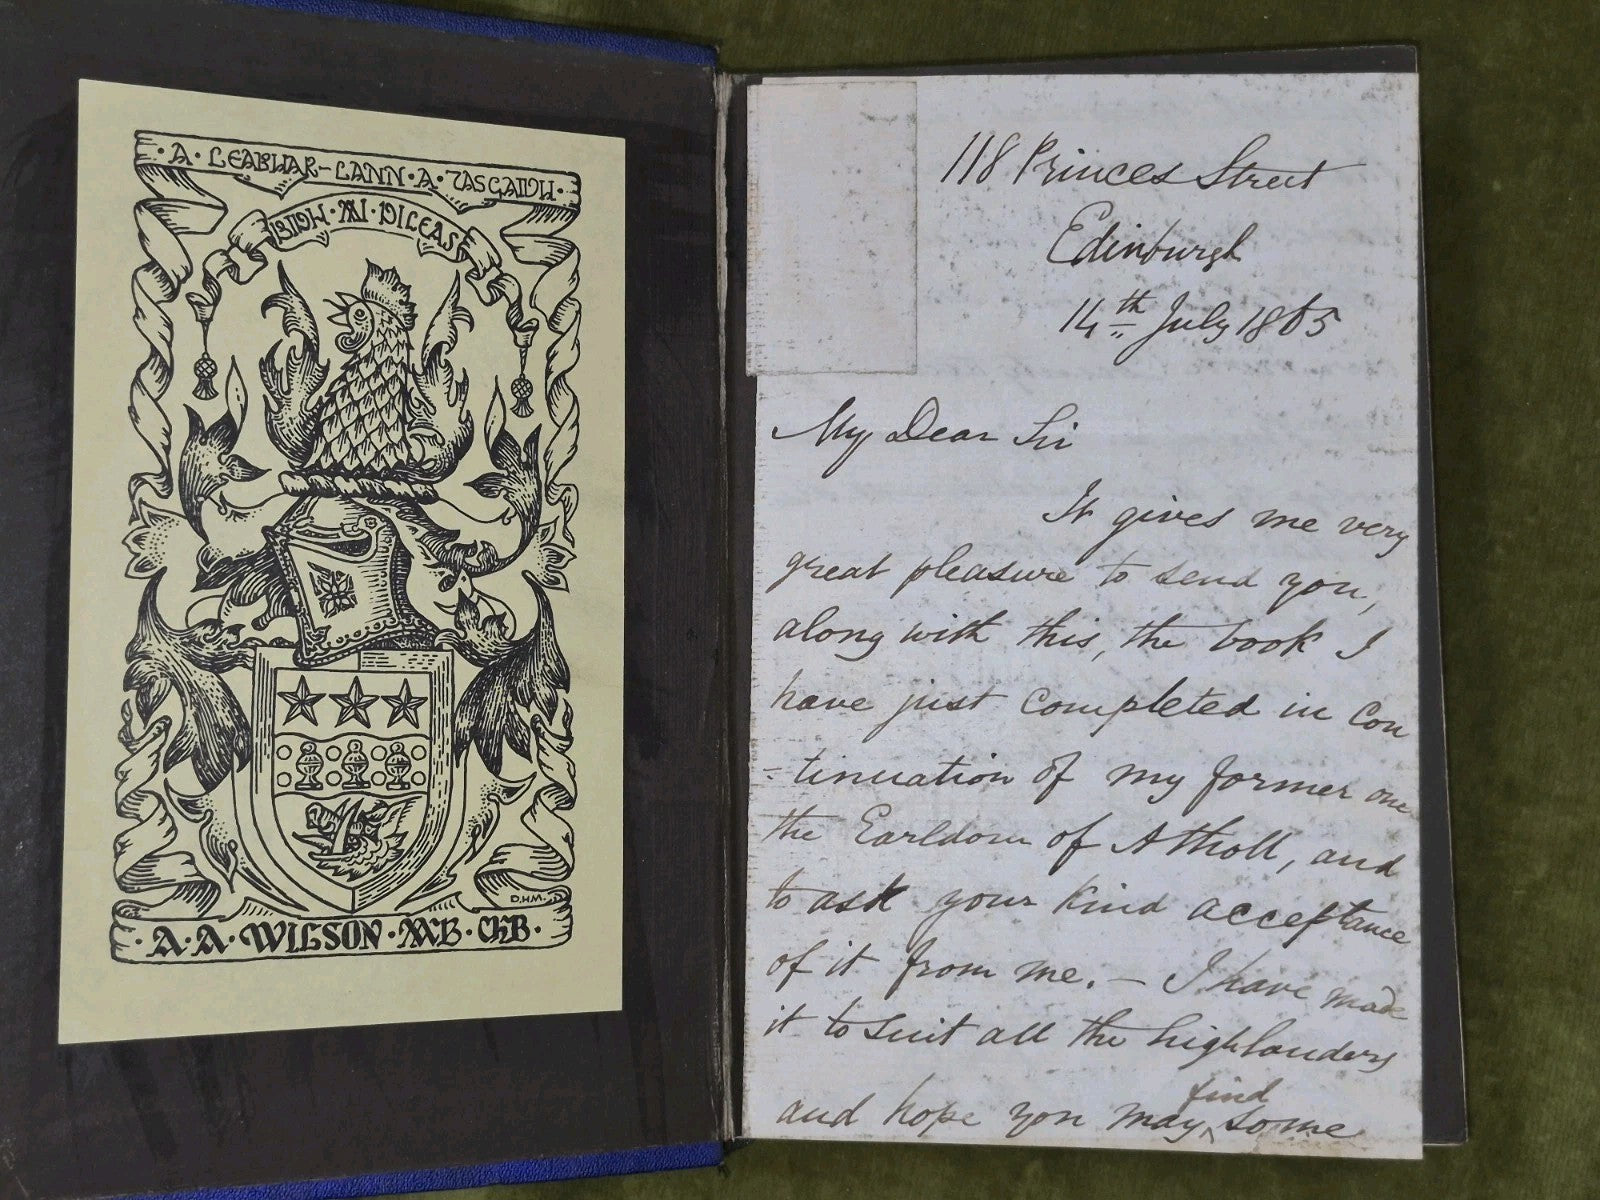 · A · LEABHAR-LANN · A · TASGAIDH ·
BIDH · MI · DILEAS
D.H.M.
· A · A · WILSON · MB · CHB ·
118 Princes Street
Edinburgh
14th July 1865
My Dear Sir
It gives me very
great pleasure to send you,
along with this, the book I
have just completed in Con
-tinuation of my former one
the Earldom of Atholl, and
to ask your kind acceptance
of it from me. – I have made
it to suit all the highlanders
find
and hope you may ^ some